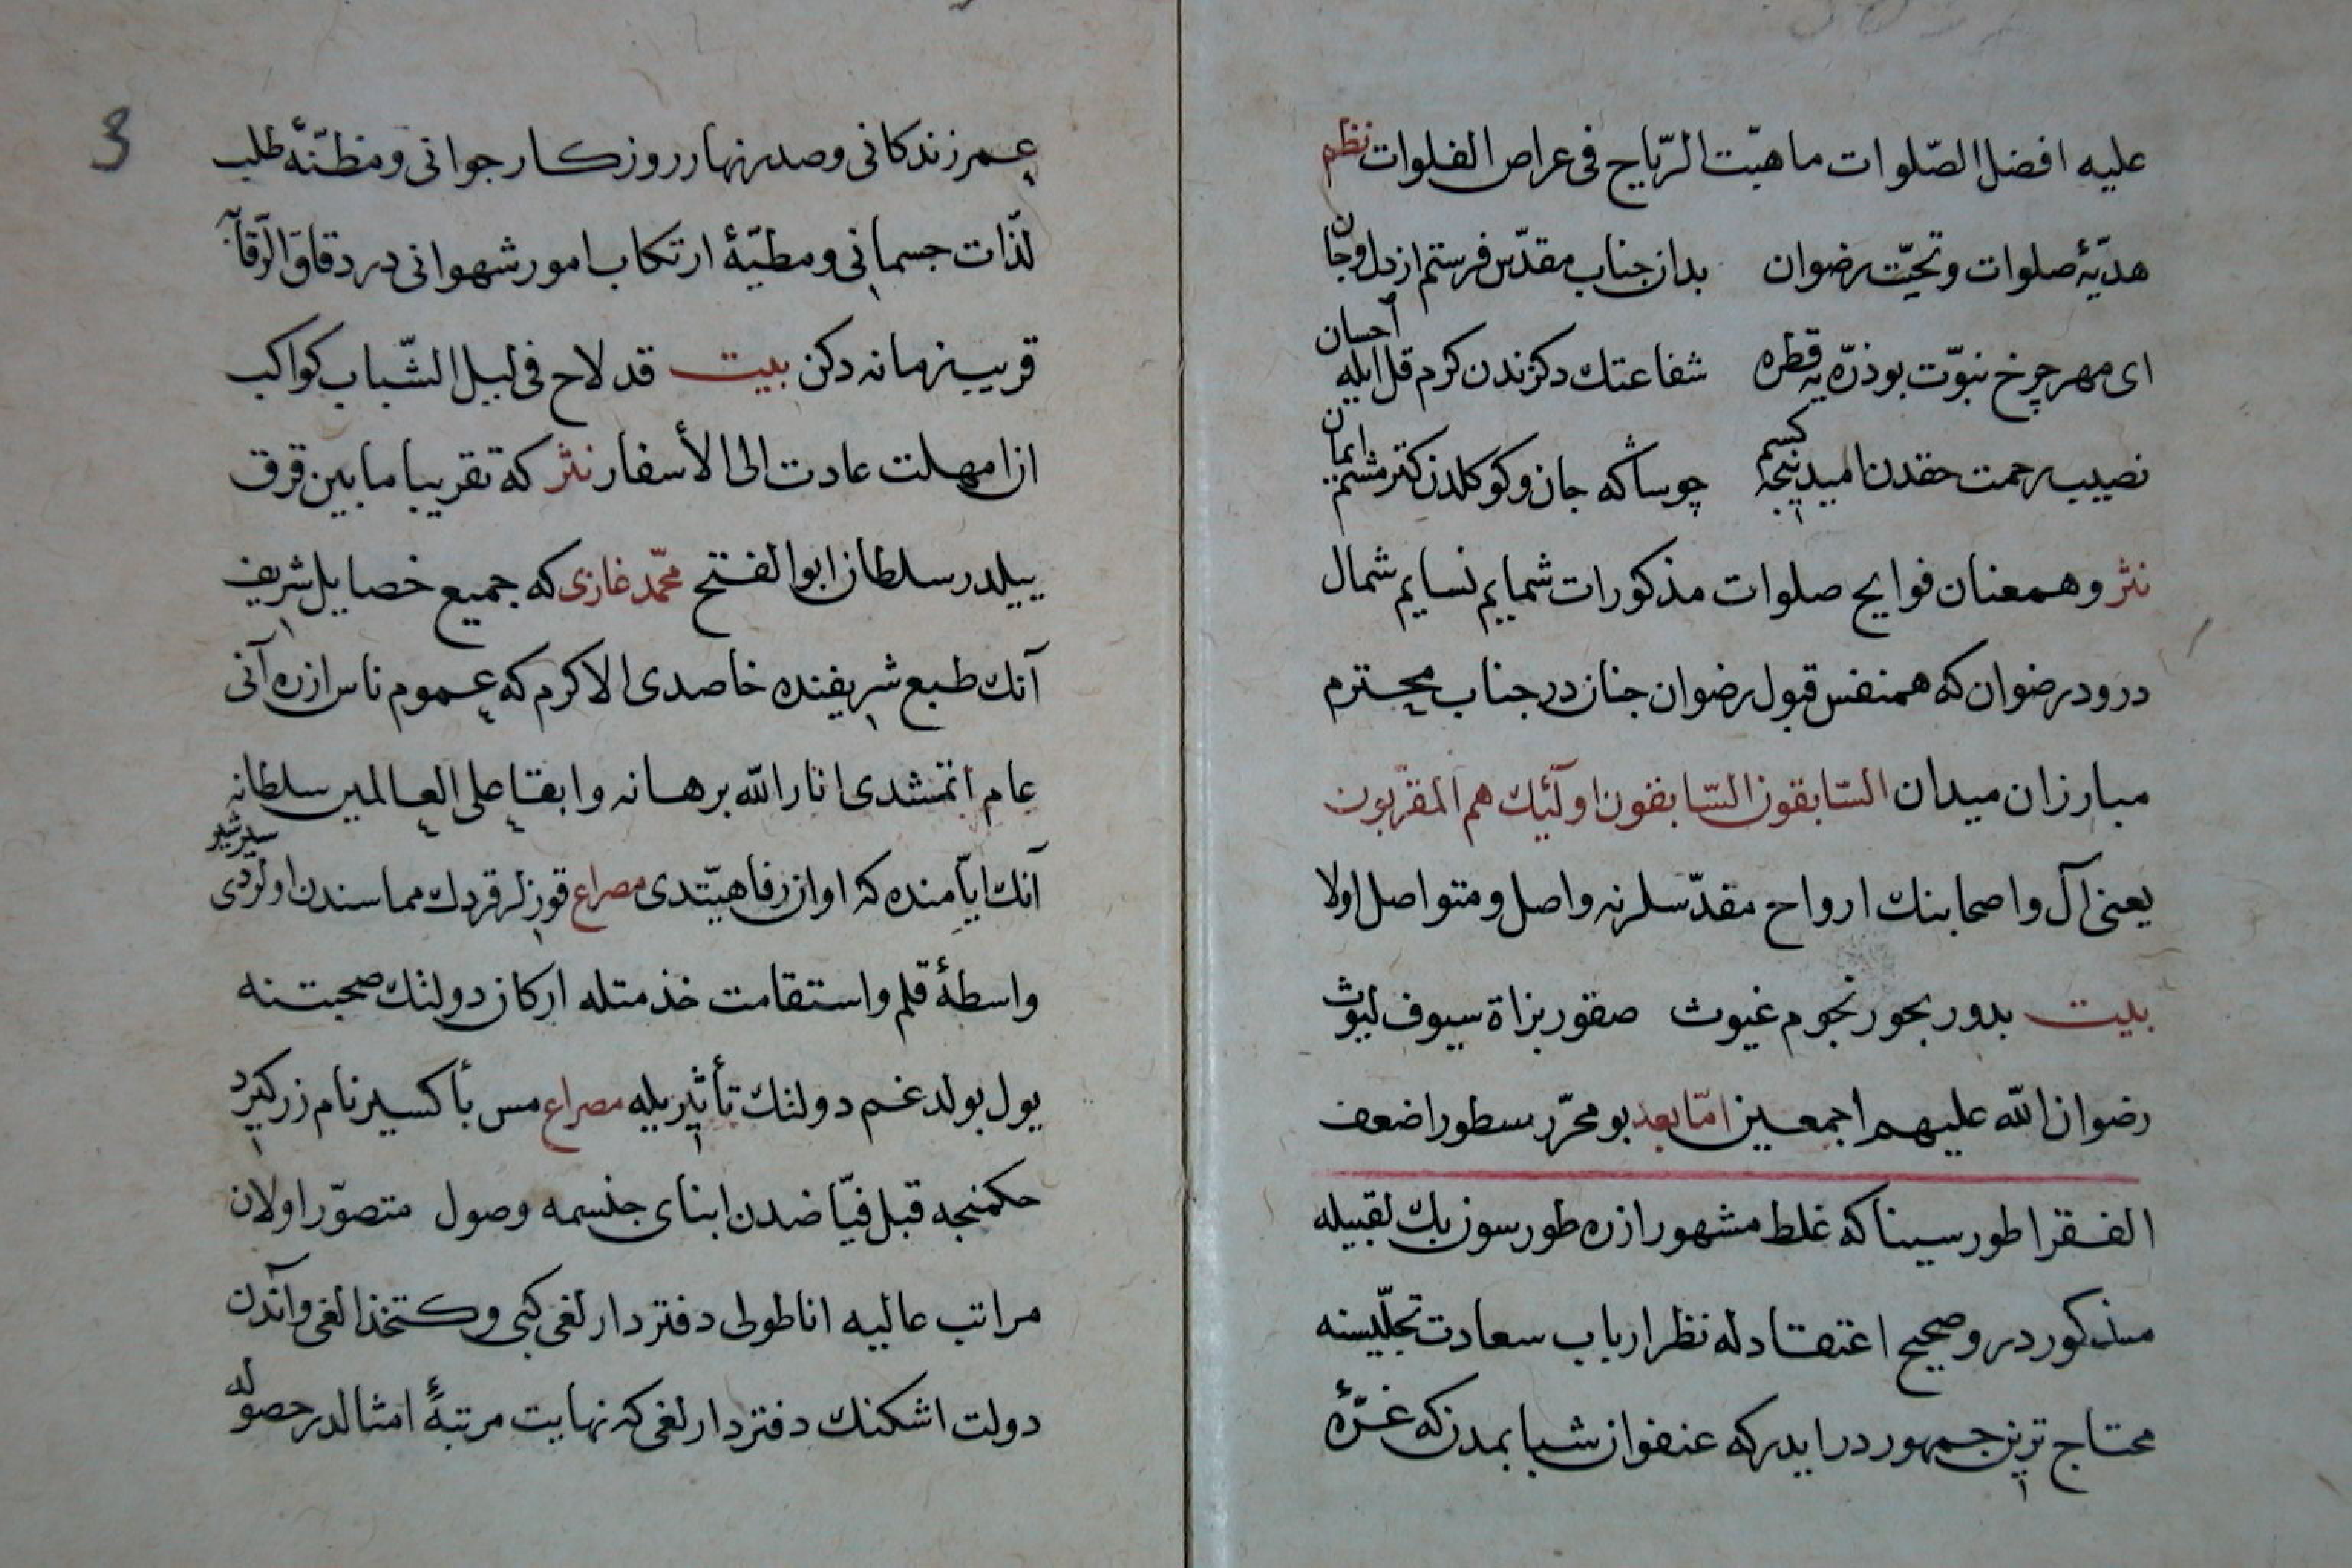 عليه افضل الصّلوات ما هبّت الرّياح فی عراص الفلوات نظم
هديّهٔ صلوات و تحيّت رضوان بدان جناب مقدّس فرستم از دل و جان
ای مهر چرخ نبوّت بو ذرّه يه قطره شفاعتك دكزندن كرم قل ايله احسان
نصيب رحمت حقدن اميد نيجه كسم چو ساكه جان و كوكلدن كتر مشم ايمان
نثر و همعنان فوايح صلوات مذكورات شمايم نسايم شمال
درود رضوان كه همنفس قبول رضوان جنان در جناب محترم
مبارزان ميدان السّابقون السّابقون اولٓئك هم المقرّبون
يعنی آل و اصحابنك ارواح مقدّسلرنه واصل و متواصل اولا
بيت بدور بحور نجوم غيوث صقور بزاة سيوف ليوث
رضوان الله عليهم اجمعين امّا بعد بو محرّر سطور اضعف
الفقرا طور سينا كه غلط مشهور ازره طورسون بك لقبيله
مذكوردر و صحيح اعتقادله نظر ارباب سعادت تجلّيسنه
محتاج ترين جمهوردر ايدر كه عنفوان شبابمدن كه غرّهٔ
3
عمر زندكانی و صدر نهار روزكار جوانی و مظنّهٔ طلب
لذّات جسمانی و مطيّهٔ ارتكاب امور شهوانی در دقاق الرّقاب
قريب زمانه دكن بيت قد لاح فی ليل الشّباب كواكب
ان امهلت عادت الی الأسفار نثر كه تقريبا مابين قرق
ييلدر سلطان ابو الفتح محمّد غازی كه جميع خصايل شريف
آنك طبع شريفنده خاصدی الا كرم كه عموم ناس ازره آنی
عام اتمشدی انار الله برهانه و ابقا علی العالمين سلطانه
آنك ايّامنده كه اوان رفاهيّتدی مصراع قوزلر قردك مماسندن اولوردی سير شير
واسطهٔ قلم و استقامت خذمتله اركان دولتك صحبتنه
يول بولدغم دولتك تأثيريله مصراع مس بأكسير نام زر كيرد
حكمنجه قبل فيّاضدن ابنای جنسمه وصول متصوّر اولان
مراتب عاليه اناطولی دفتردارلغی كبی و كتخذالغی و آندن
دولت اشكنك دفتردارلغی كه نهايت مرتبهٔ امثالدر حصوله